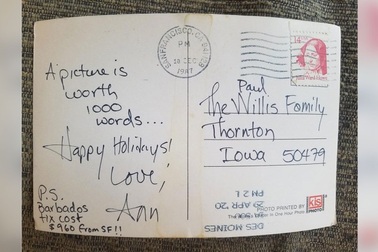 SAN FRANCISCO, CA
PM
18 DEC
1987
A picture is
worth
1000
words...
Happy Holidays!
Love,
Ann
P.S.
Barbados
tix cost
$960 from SF!!
Paul
The Willis Family
Thornton
Iowa 50479
DES MOINES
29 APR '20
PM 2 L
PHOTO PRINTED BY